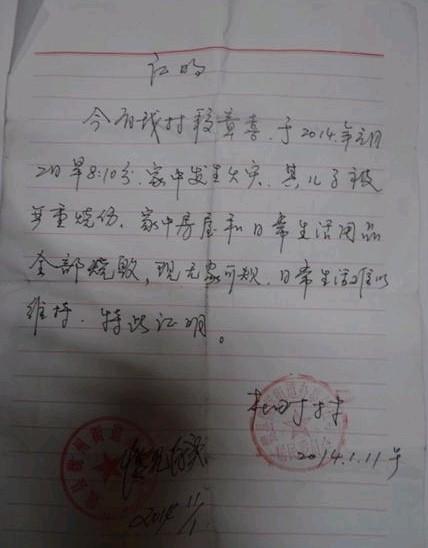 证明
今有我村段章喜,于2014.年元月
2日早8:10分.家中发生火灾.其儿子被
严重烧伤.家中房屋和日常生活用品
全部烧毁,现无家可归.日常生活难以
维持.特此证明。
杜时村
2014.1.11号
情况属实
2014 11/1